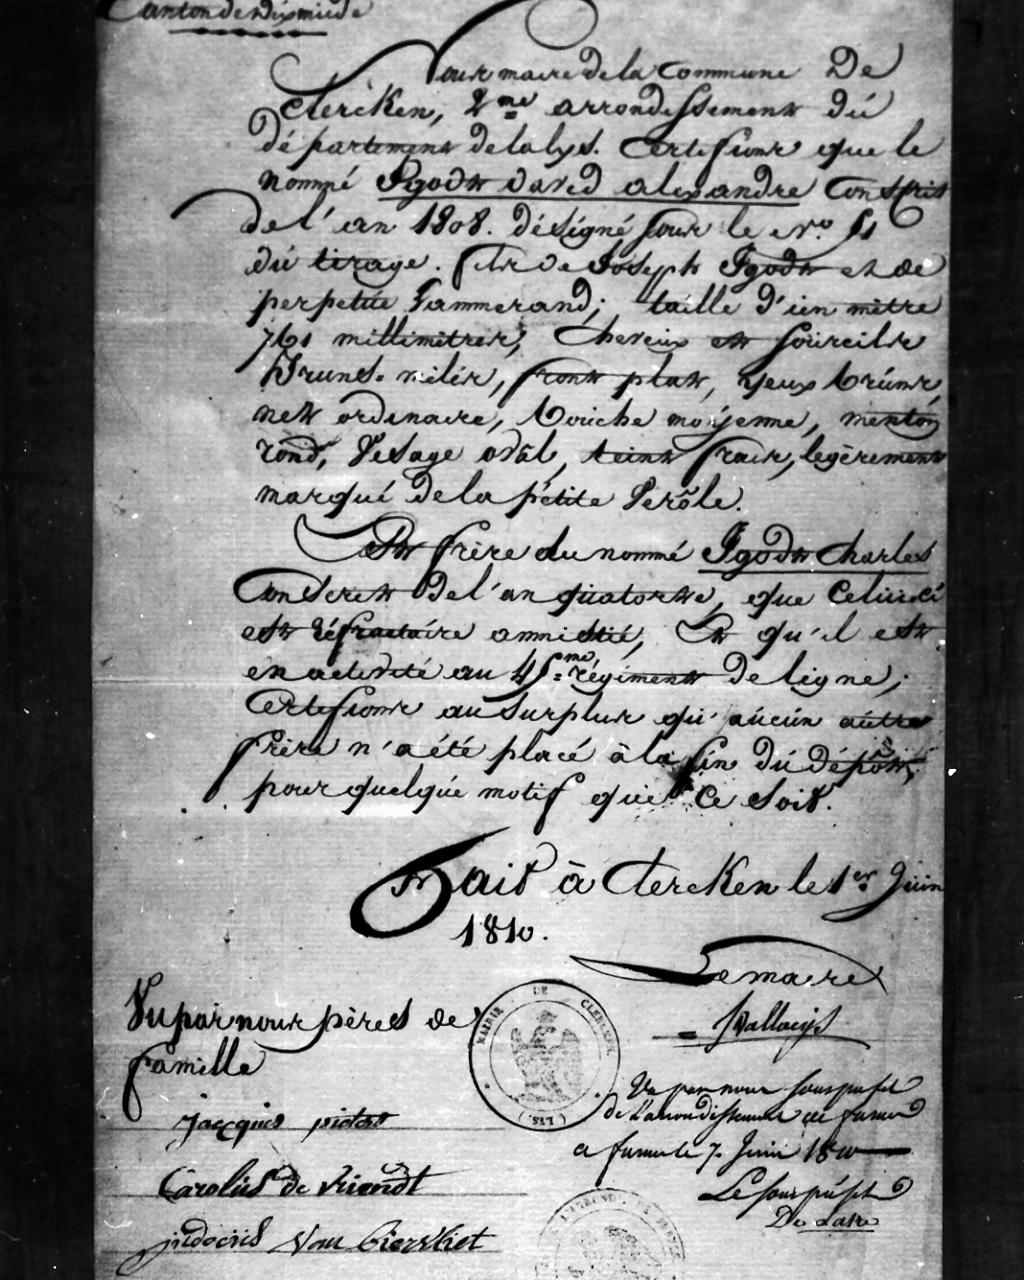 Canton de Dixmude
Nous maire de la Commune De
Clercken, 2me arrondissement du
département de la lys. Certifions que le
nommé Igodt david alexandre Conscrit
de l'an 1808. désigné sous le nro. 51
du tirage. fils de Joseph Igodt et de
perpetue Tammerand; taille d'un mètre
761 millimètres, Cheveux et sourcils
bruns mêlés, front plat, yeux bruns
nets ordinaire, bouche moyenne, menton
rond, Visage oval, teint frais, legèrement
marqué de la petite Verôle.
Est frère du nommé Igodt Charles
Conscrit de l'an quatorze, que Celui-ci
est réfractaire amnistié, Et qu'il est
en activité au 45me régiment de ligne;
Certifions au Surplus qu'aucun autre
frère n'a été placé à la fin du dépôt,
pour quelque motif que Ce soit.
Fait à Clercken le 1er Juin
1810.
Le maire
Vu par nous pères de
famille
MAIRIE DE CLERCKEN
(LYS)
Vu par nous souspréfet
de l'arrondissement de furnes
a furnes le 7 Juin 1810
Le souspréfet
jacques
Carolus de
judocus Van